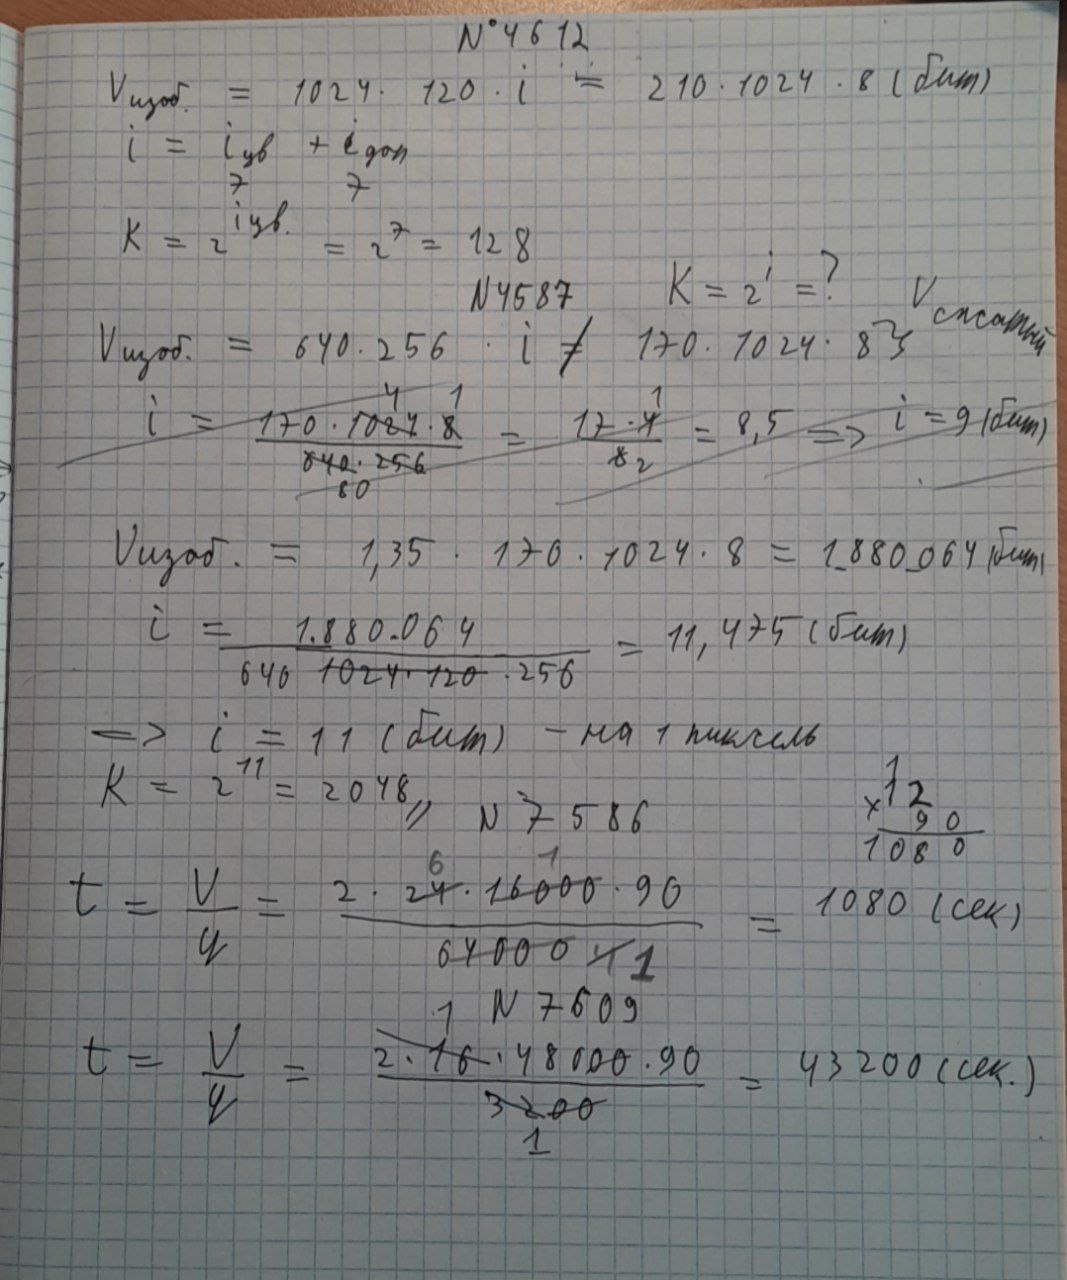 N°4612
Vизоб. = 1024 · 120 · i = 210 · 1024 · 8 (бит)
i = iцв + iдоп
7 7
K = 2^iцв. = 2^7 = 128
N4587 K = 2^i = ?
Vизоб. = 640 · 256 · i ≠ 170 · 1024 · 8 } Vсжатый
4 1 1
i = 170 · 1024 · 8 / 640 · 256 = 17 · 4 / 8 = 8,5 => i = 9 (бит)
80 2
Vизоб. = 1,35 · 170 · 1024 · 8 = 1_880_064 (бит)
i = 1.880.064 / 640 1024 · 120 · 256 = 11,475 (бит)
=> i = 11 (бит) – на 1 пиксель
K = 2^11 = 2048 //
N 7586
1
×12
90
1080
6 1
t = V/q = 2 · 24 · 16000 · 90 / 64000 = 1080 (сек)
4 1
N 7609
1
t = V/q = 2 · 16 · 48000 · 90 / 3200 = 43200 (сек.)
1